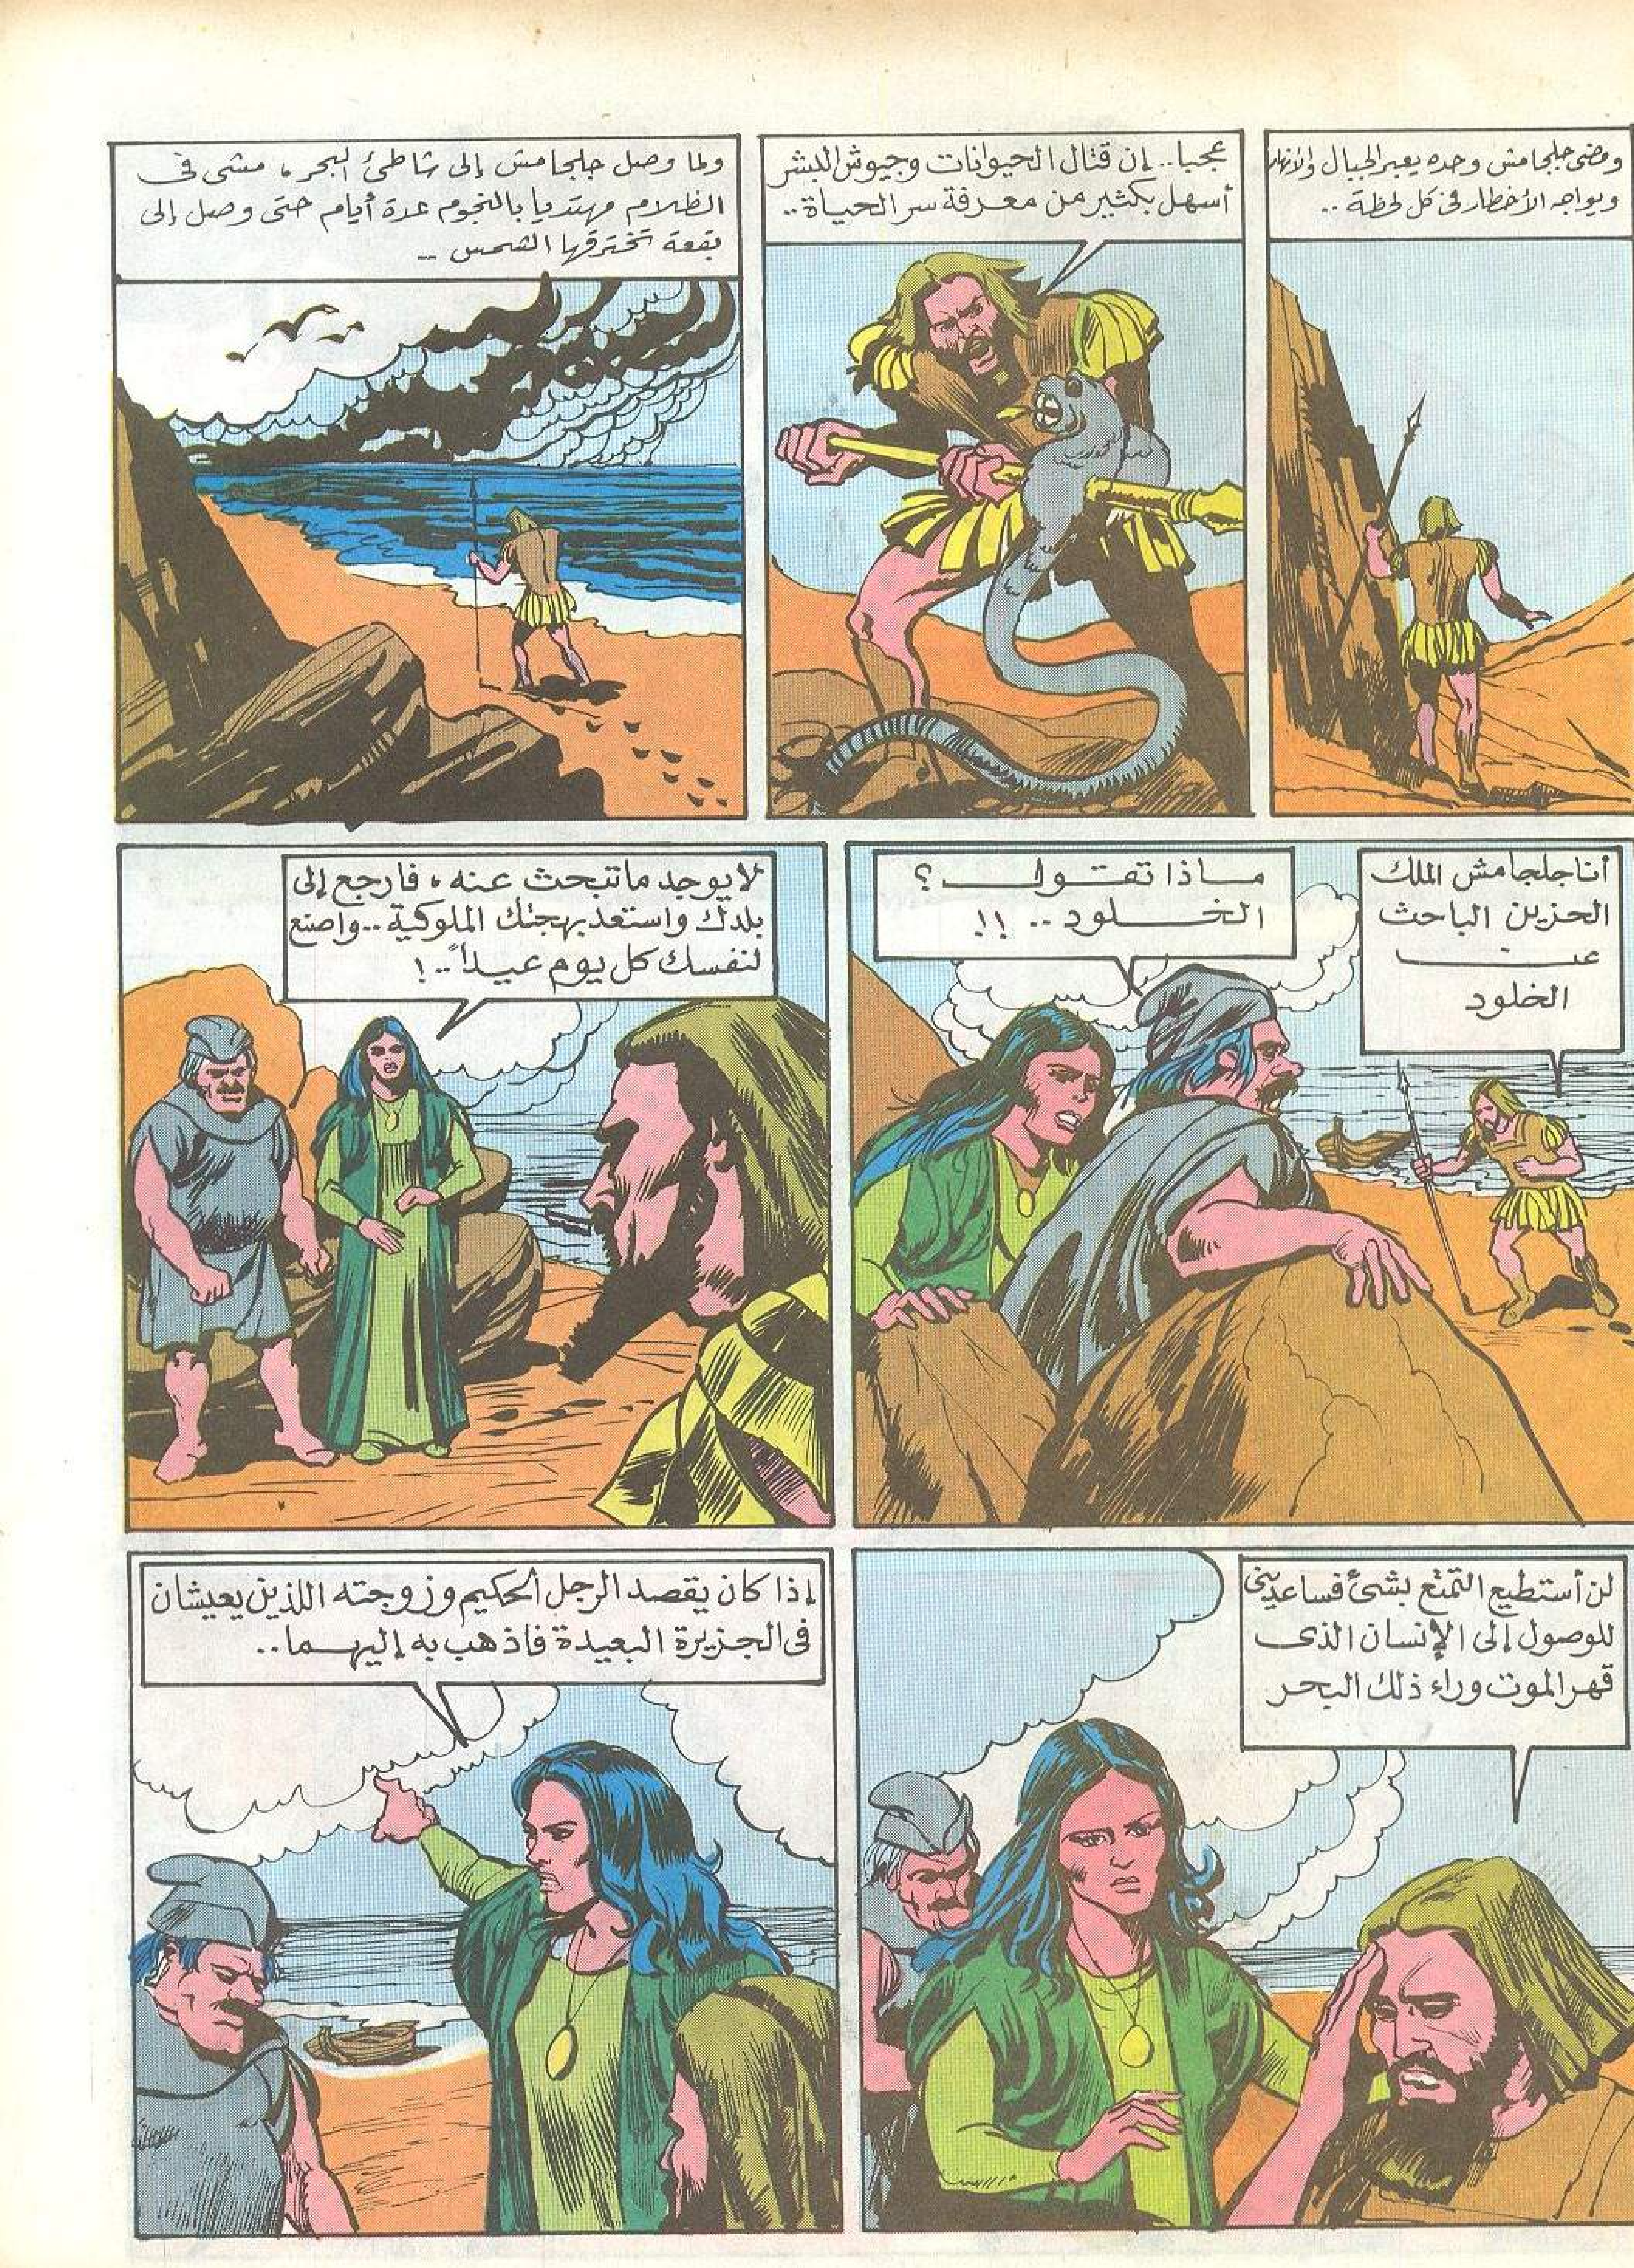 ومضى جلجامش وحده يعبر الجبال والأنهار
ويواجه الأخطار فى كل لحظة ..
عجبا.. إن قتال الحيوانات وجيوش البشر
أسهل بكثير من معرفة سر الحياة..
ولما وصل جلجامش إلى شاطئ البحر، مشى فى
الظلام مهتديا بالنجوم عدة أيام حتى وصل إلى
بقعة تخترقها الشمس ..
أنا جلجامش الملك
الحزين الباحث
عن
الخلود
ماذا تقول ؟
الخلود .. !!
لا يوجد ما تبحث عنه، فارجع إلى
بلدك واستعد بهجتك الملوكية .. واصنع
لنفسك كل يوم عيداً..!
لن أستطيع التمتع بشئ فساعدينى
للوصول إلى الإنسان الذى
قهر الموت وراء ذلك البحر
إذا كان يقصد الرجل الحكيم وزوجته اللذين يعيشان
فى الجزيرة البعيدة فاذهب به إليهما..